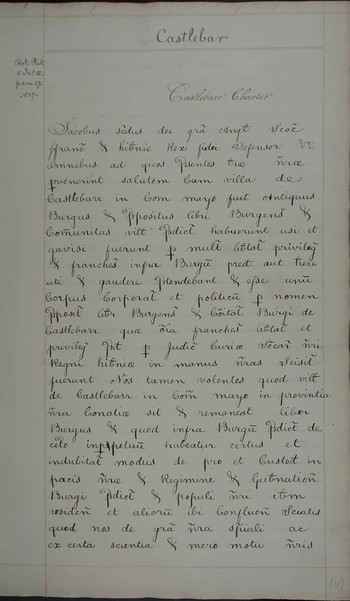 Castlebar
Rot. Pat.
Castlebarr Charter
Jacobus sc̃dus dei grã Angt Scoc̃
ffranc̃ & hib̃nie Rex fidei Defensor &c.
Omnibus ad quos p̃sentes tr̃æ ñræ
pvenerint salutem Cum villa de
Castlebarr in Com mayo fuit Antiquus
Burgus & p̃positus lib̃i Burgens̃ &
Com̃unitas vilt p̃dict̃ habuerunt usi et
gavisi fuerunt p mult̃ lib̃tat̃ privileg̃
& franches̃ infra Burgũ pred aut
uti & gaudere p̃tendebant & esse unũ
Corpus Corporat̃ et politicũ p nomen
p̃posit̃ lib̃r Burgens̃ & C̃oitat̃ Burgi de
Castlebarr quæ õia franches̃ lib̃tat̃ et
privileg̃ p̃d p Judic̃ Curiæ Sc̃acar̃ ñri
Regni hib̃niæ in manus ñras Seisit̃
fuerunt Nos tamen volentes quod vilt
de Castlebarr in Com̃ mayo in provintia
ñra Conatiæ sit & remaneat liber
Burgus & quod infra Burgũ p̃dict̃ de
cet̃o inppetuũ habeatur certus et
indubitat̃ modus de pro et Custod in
pacis ñræ & Regimine & Gub̃nation̄
Burgi p̃dict̃ & populi ñri ib̃m
residen̄ et alioru ibi Confluen̄ Sciatis
quod nos de grã ñra sp̃iali ac
ex certa scientia & mero motu ñris